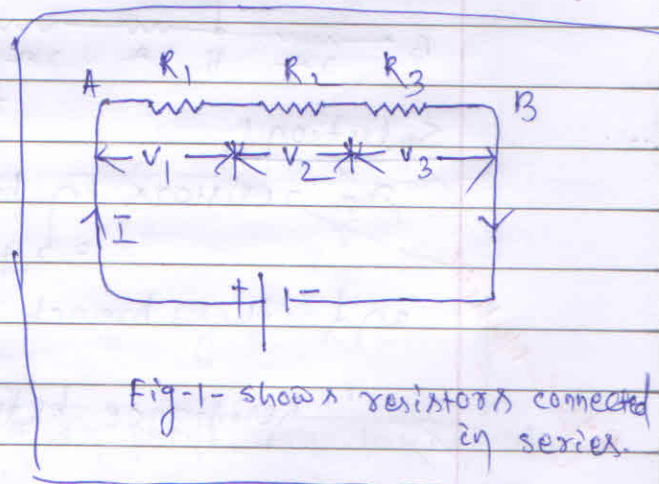 R1 R2 R3
A B
V1 V2 V3
I
+ -
Fig-1- shows resistors connected
in series.